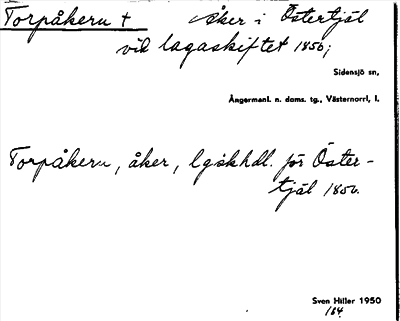 Torpåkern † Åker i Östertjäl
vid lagaskiftet 1850;
Sidensjö sn,
Ångermanl. n. doms. tg., Västernorrl, l.
Torpåkern, åker, lgskhdl. för Öster-
tjäl 1850.
Sven Hiller 1950
164